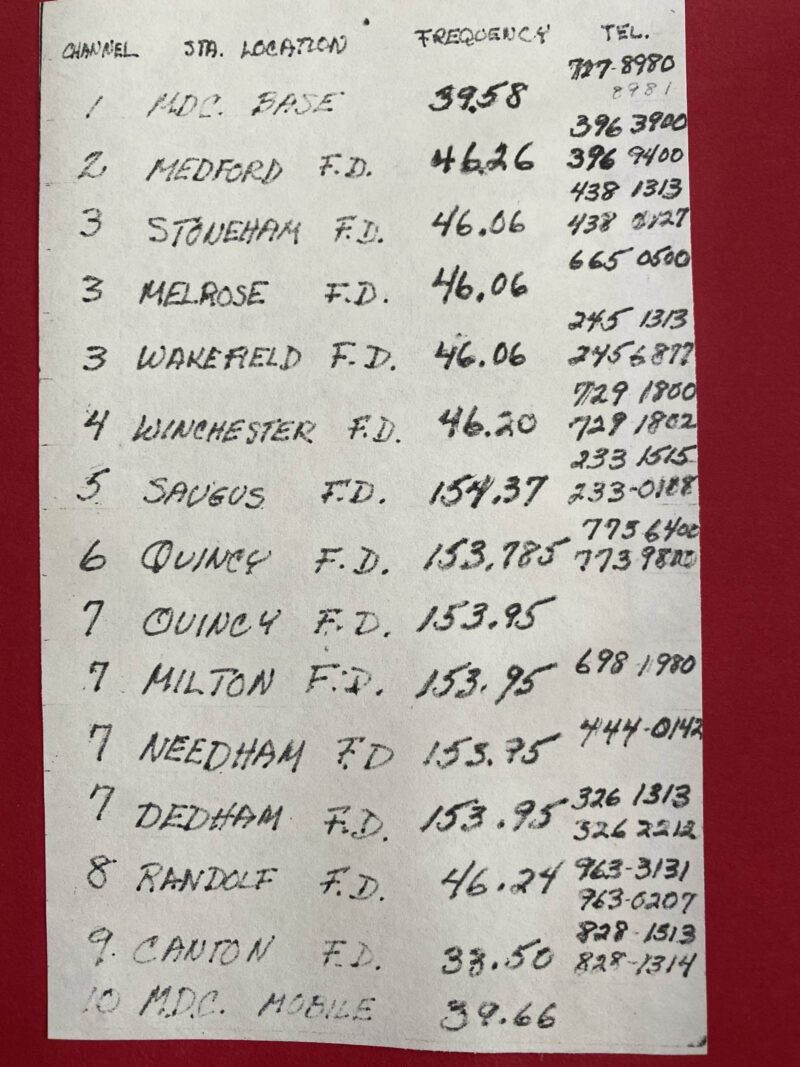 CHANNEL STA. LOCATION FREQUENCY TEL.
727-8980
1 M.D.C. BASE 39.58 8981
396 3900
2 MEDFORD F.D. 46.26 396 9400
438 1313
3 STONEHAM F.D. 46.06 438 0127
665 0500
3 MELROSE F.D. 46.06
245 1313
3 WAKEFIELD F.D. 46.06 245 6877
729 1800
4 WINCHESTER F.D. 46.20 729 1802
233 1515
5 SAUGUS F.D. 154.37
773 6400
6 QUINCY F.D. 153.785 773 9800
7 QUINCY F.D. 153.95
7 MILTON F.D. 153.95 698-1980
444-0142
7 NEEDHAM F.D 153.95
326 1313
7 DEDHAM F.D. 153.95 326 2212
8 RANDOLF F.D. 46.24 963-3131
963-0207
828-1313
9. CANTON F.D. 33.50 828-1314
10 M.D.C. MOBILE 39.66